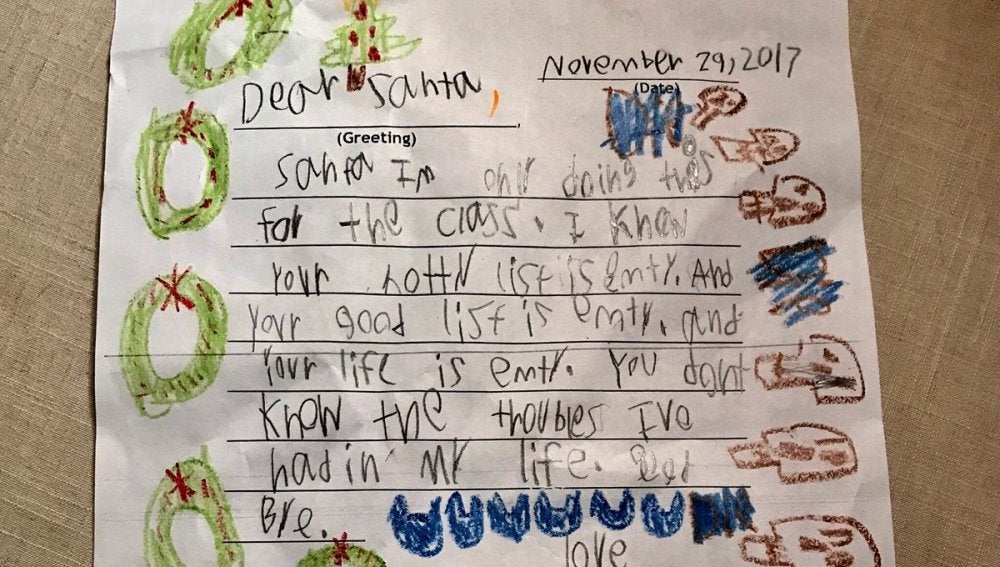 November 29, 2017
(Date)
Dear Santa,
(Greeting)
Santa Im only doing this
for the class. I know
Your notty list is emty. And
your good list is emty. and
Your life is emty. You dont
know the troubles Ive
had in my life. Good
Bye.
love